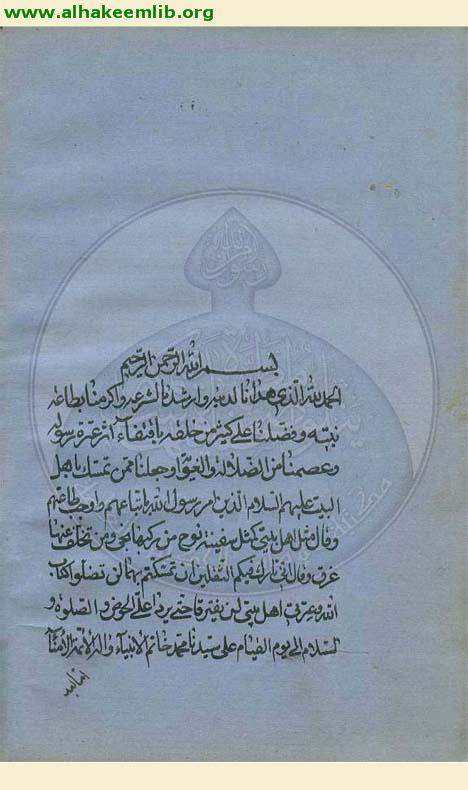 www.alhakeemlib.org
بسم الله الرحمن الرحيم
الحمد لله الذي هدانا لدينه وارشدنا لشرعه واكرمنا بطاعة
نبيّه وفضّلنا على كثير من خلقه باقتفاء آثر عترة رسوله
وعصمنا من الضلالة والغيّ وجعلنا ممن تمسّك باهل
البيت عليهم السلام الذين امر رسول الله باتباعهم واوجب طاعتهم
وقال مثل اهل بيتي كمثل سفينة نوح من ركبها نجى ومن تخلّف عنها
غرق وقال انّي تارك فيكم الثقلين ان تمسّكتم بهما لن تضلوا كتاب
الله وعترتي اهل بيتي لن يفترقا حتى يردا عليّ الحوض والصلوة و
السلام الى يوم القيام على سيدنا محمد خاتم الانبياء واله الائمة الامناء
اما بعد